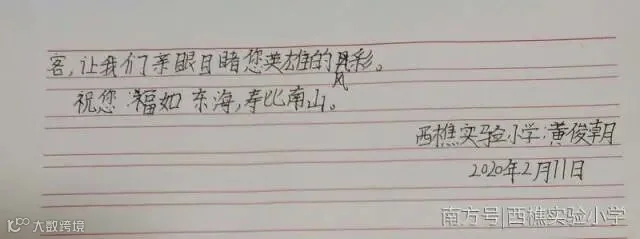 客,让我们亲眼目睹您英雄的风彩。
祝您 福如东海,寿比南山。
西樵实验小学:黄俊朝
2020年2月11日
大数跨境
南方号|西樵实验小学